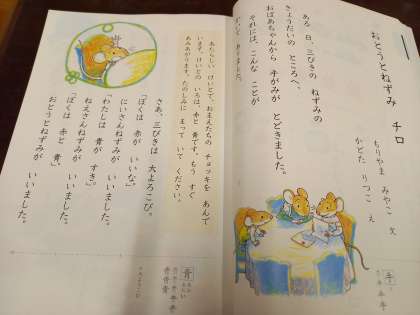 おとうとねずみ チロ
もりやま みやこ 文
かどた りつこ え
ある 日、三びきの ねずみの
きょうだいの ところへ、
おばあちゃんから 手がみが とどきました。
それには、こんな ことが
かいて ありました。
あたらしい けいとで、おまえたちの チョッキを あんで
います。けいとの いろは、赤と 青です。もう すぐ
あみあがります。たのしみに まって いて ください。
さあ、三びきは 大よろこび。
「ぼくは 赤が いいな。」
にいさんねずみが いいました。
「わたしは 青が すき。」
ねえさんねずみが いいました。
「ぼくは 赤と 青。」
おとうとねずみが いいました。
手
青